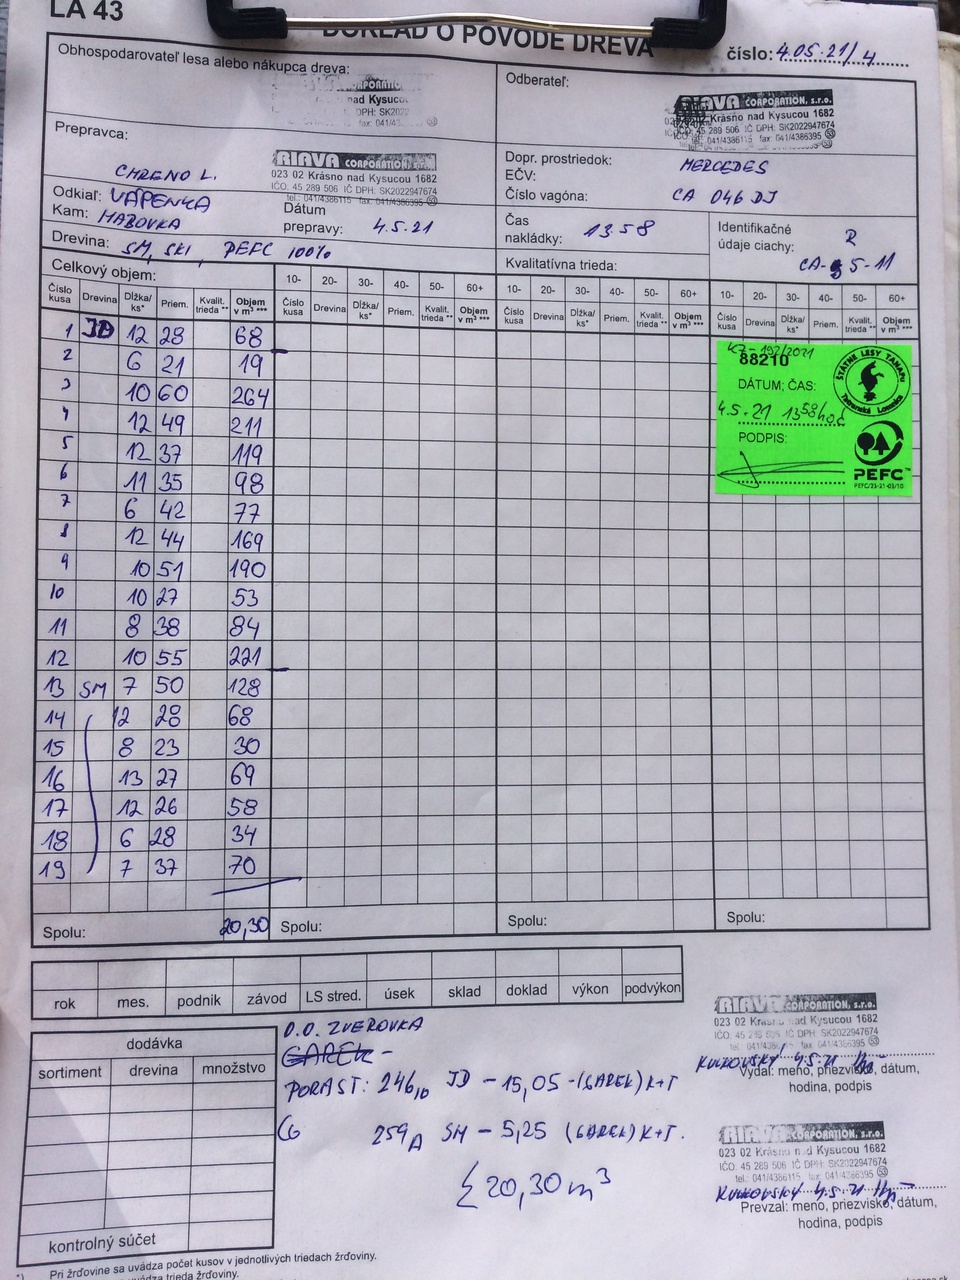 LA 43
DOKLAD O PÔVODE DREVA
číslo: 4.05.21/4
Obhospodarovateľ lesa alebo nákupca dreva:
nad Kysucou
DPH: SK2022
Odberateľ:
RIAVA CORPORATION, s.r.o.
023 02 Krásno nad Kysucou 1682
IČO: 45 289 506 IČ DPH: SK2022947674
tel.: 041/4386115 fax: 041/4386395
Prepravca:
CHRENO L.
RIAVA CORPORATION, s.r.o.
023 02 Krásno nad Kysucou 1682
IČO. 45 289 506 IČ DPH: SK2022947674
tel.: 041/4386115 fax: 041/4386395
Dopr. prostriedok: MERCEDES
EČV:
Číslo vagóna: CA 046 DJ
Odkiaľ: VÁPENKA
Kam: HABOVKA
Dátum prepravy: 4.5.21
Čas nakládky: 13 58
Identifikačné údaje ciachy: R
CA- 5-11
Drevina: SM, SKI, PEFC 100%
Kvalitatívna trieda:
Celkový objem: 10- 20- 30- 40- 50- 60+ 10- 20- 30- 40- 50- 60+ 10- 20- 30- 40- 50- 60+
Číslo kusa Drevina Dĺžka/ks* Priem. Kvalit. trieda ** Objem v m³ *** Číslo kusa Drevina Dĺžka/ks* Priem. Kvalit. trieda ** Objem v m³ *** Číslo kusa Drevina Dĺžka/ks* Priem. Kvalit. trieda ** Objem v m³ *** Číslo kusa Drevina Dĺžka/ks* Priem. Kvalit. trieda ** Objem v m³ ***
1 JD 12 28 68
2 6 21 19
3 10 60 264
4 12 49 211
5 12 37 119
6 11 35 98
7 6 42 77
8 12 44 169
9 10 51 190
10 10 27 53
11 8 38 84
12 10 55 221
13 SM 7 50 128
14 12 28 68
15 8 23 30
16 13 27 69
17 12 26 58
18 6 28 34
19 7 37 70
KZ-192/2021
88210
DÁTUM; ČAS:
4.5.21 13 58 hod
PODPIS:
ŠTÁTNE LESY TANAPu
Tatranská Lomnica
PEFC™
PEFC/23-21-03/10
Spolu: 20,30 Spolu: Spolu: Spolu:
rok mes. podnik závod LS stred. úsek sklad doklad výkon podvýkon
dodávka
sortiment drevina množstvo
kontrolný súčet
O.O. ZVEROVKA
GAREK -
PORAST: 246 10 JD - 15,05 - (GAREK) K+T
259 A SM - 5,25 (GAREK) K+T.
Σ 20,30 m³
RIAVA CORPORATION, s.r.o.
023 02 Krásno nad Kysucou 1682
IČO. 45 289 506 IČ DPH: SK2022947674
tel. 041/4386115 fax: 041/4386395
4.5.21
Vydal: meno, priezvisko, dátum,
hodina, podpis
RIAVA CORPORATION, s.r.o.
023 02 Krásno nad Kysucou 1682
IČO. 45 289 506 IČ DPH: SK2022947674
tel.: 041/4386115 fax: 041/4386395
4.5.21
Prevzal: meno, priezvisko, dátum,
hodina, podpis
*) Pri žrďovine sa uvádza počet kusov v jednotlivých triedach žrďoviny.
uvádza trieda žrďoviny.